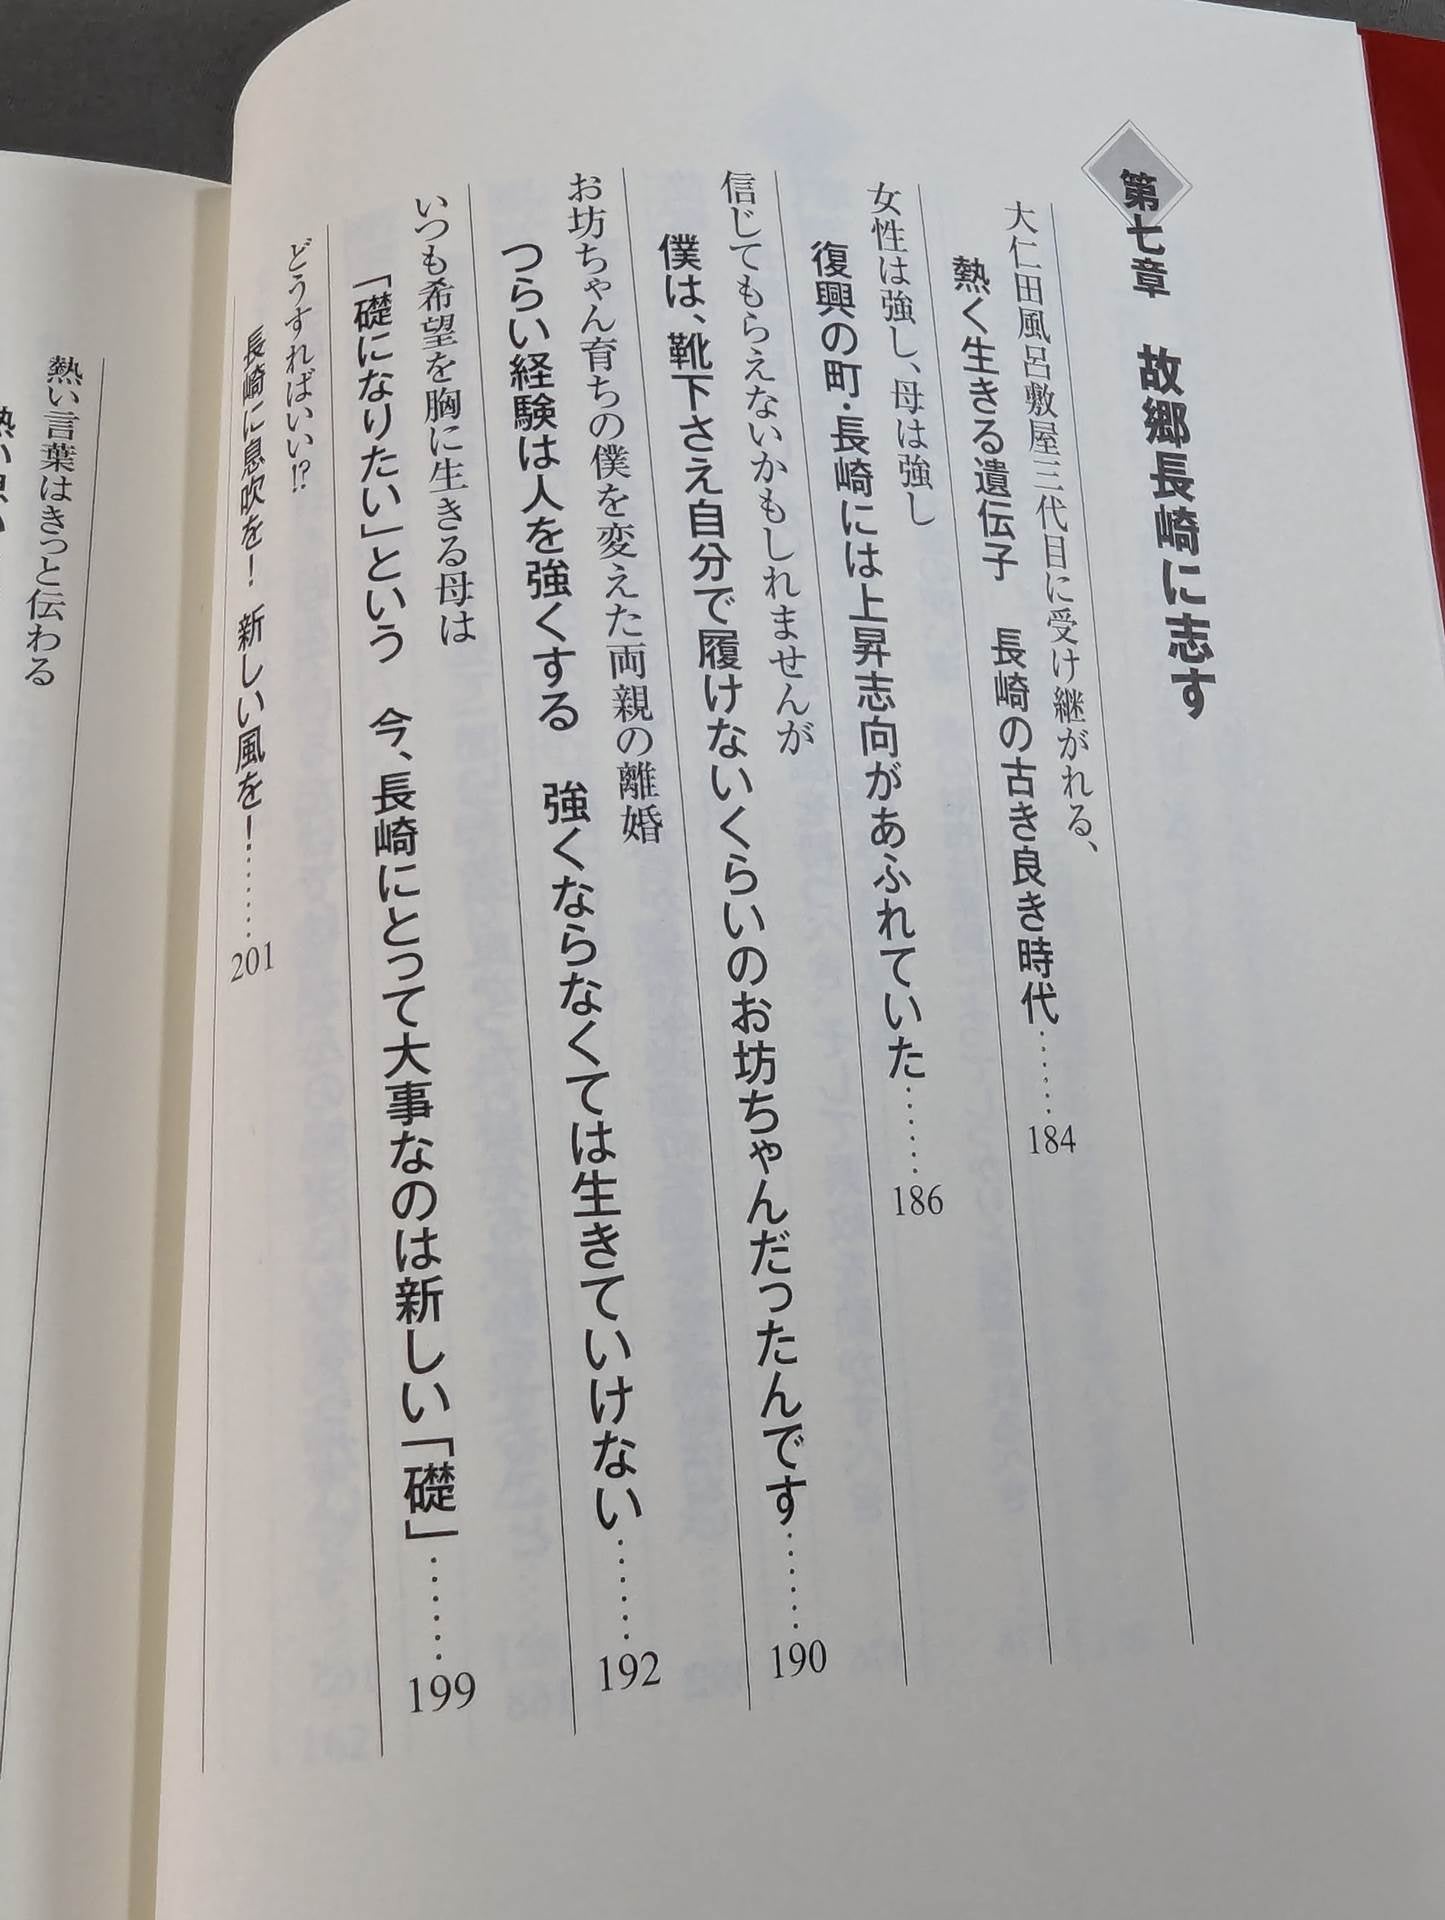 第七章　故郷長崎に志す
大仁田風呂敷屋三代目に受け継がれる、
熱く生きる遺伝子　長崎の古き良き時代……184
女性は強し、母は強し
復興の町・長崎には上昇志向があふれていた……186
信じてもらえないかもしれませんが
僕は、靴下さえ自分で履けないくらいのお坊ちゃんだったんです……190
お坊ちゃん育ちの僕を変えた両親の離婚
つらい経験は人を強くする　強くならなくては生きていけない……192
いつも希望を胸に生きる母は
「礎になりたい」という　今、長崎にとって大事なのは新しい「礎」……199
どうすればいい!?
長崎に息吹を！　新しい風を！……201
熱い言葉はきっと伝わる